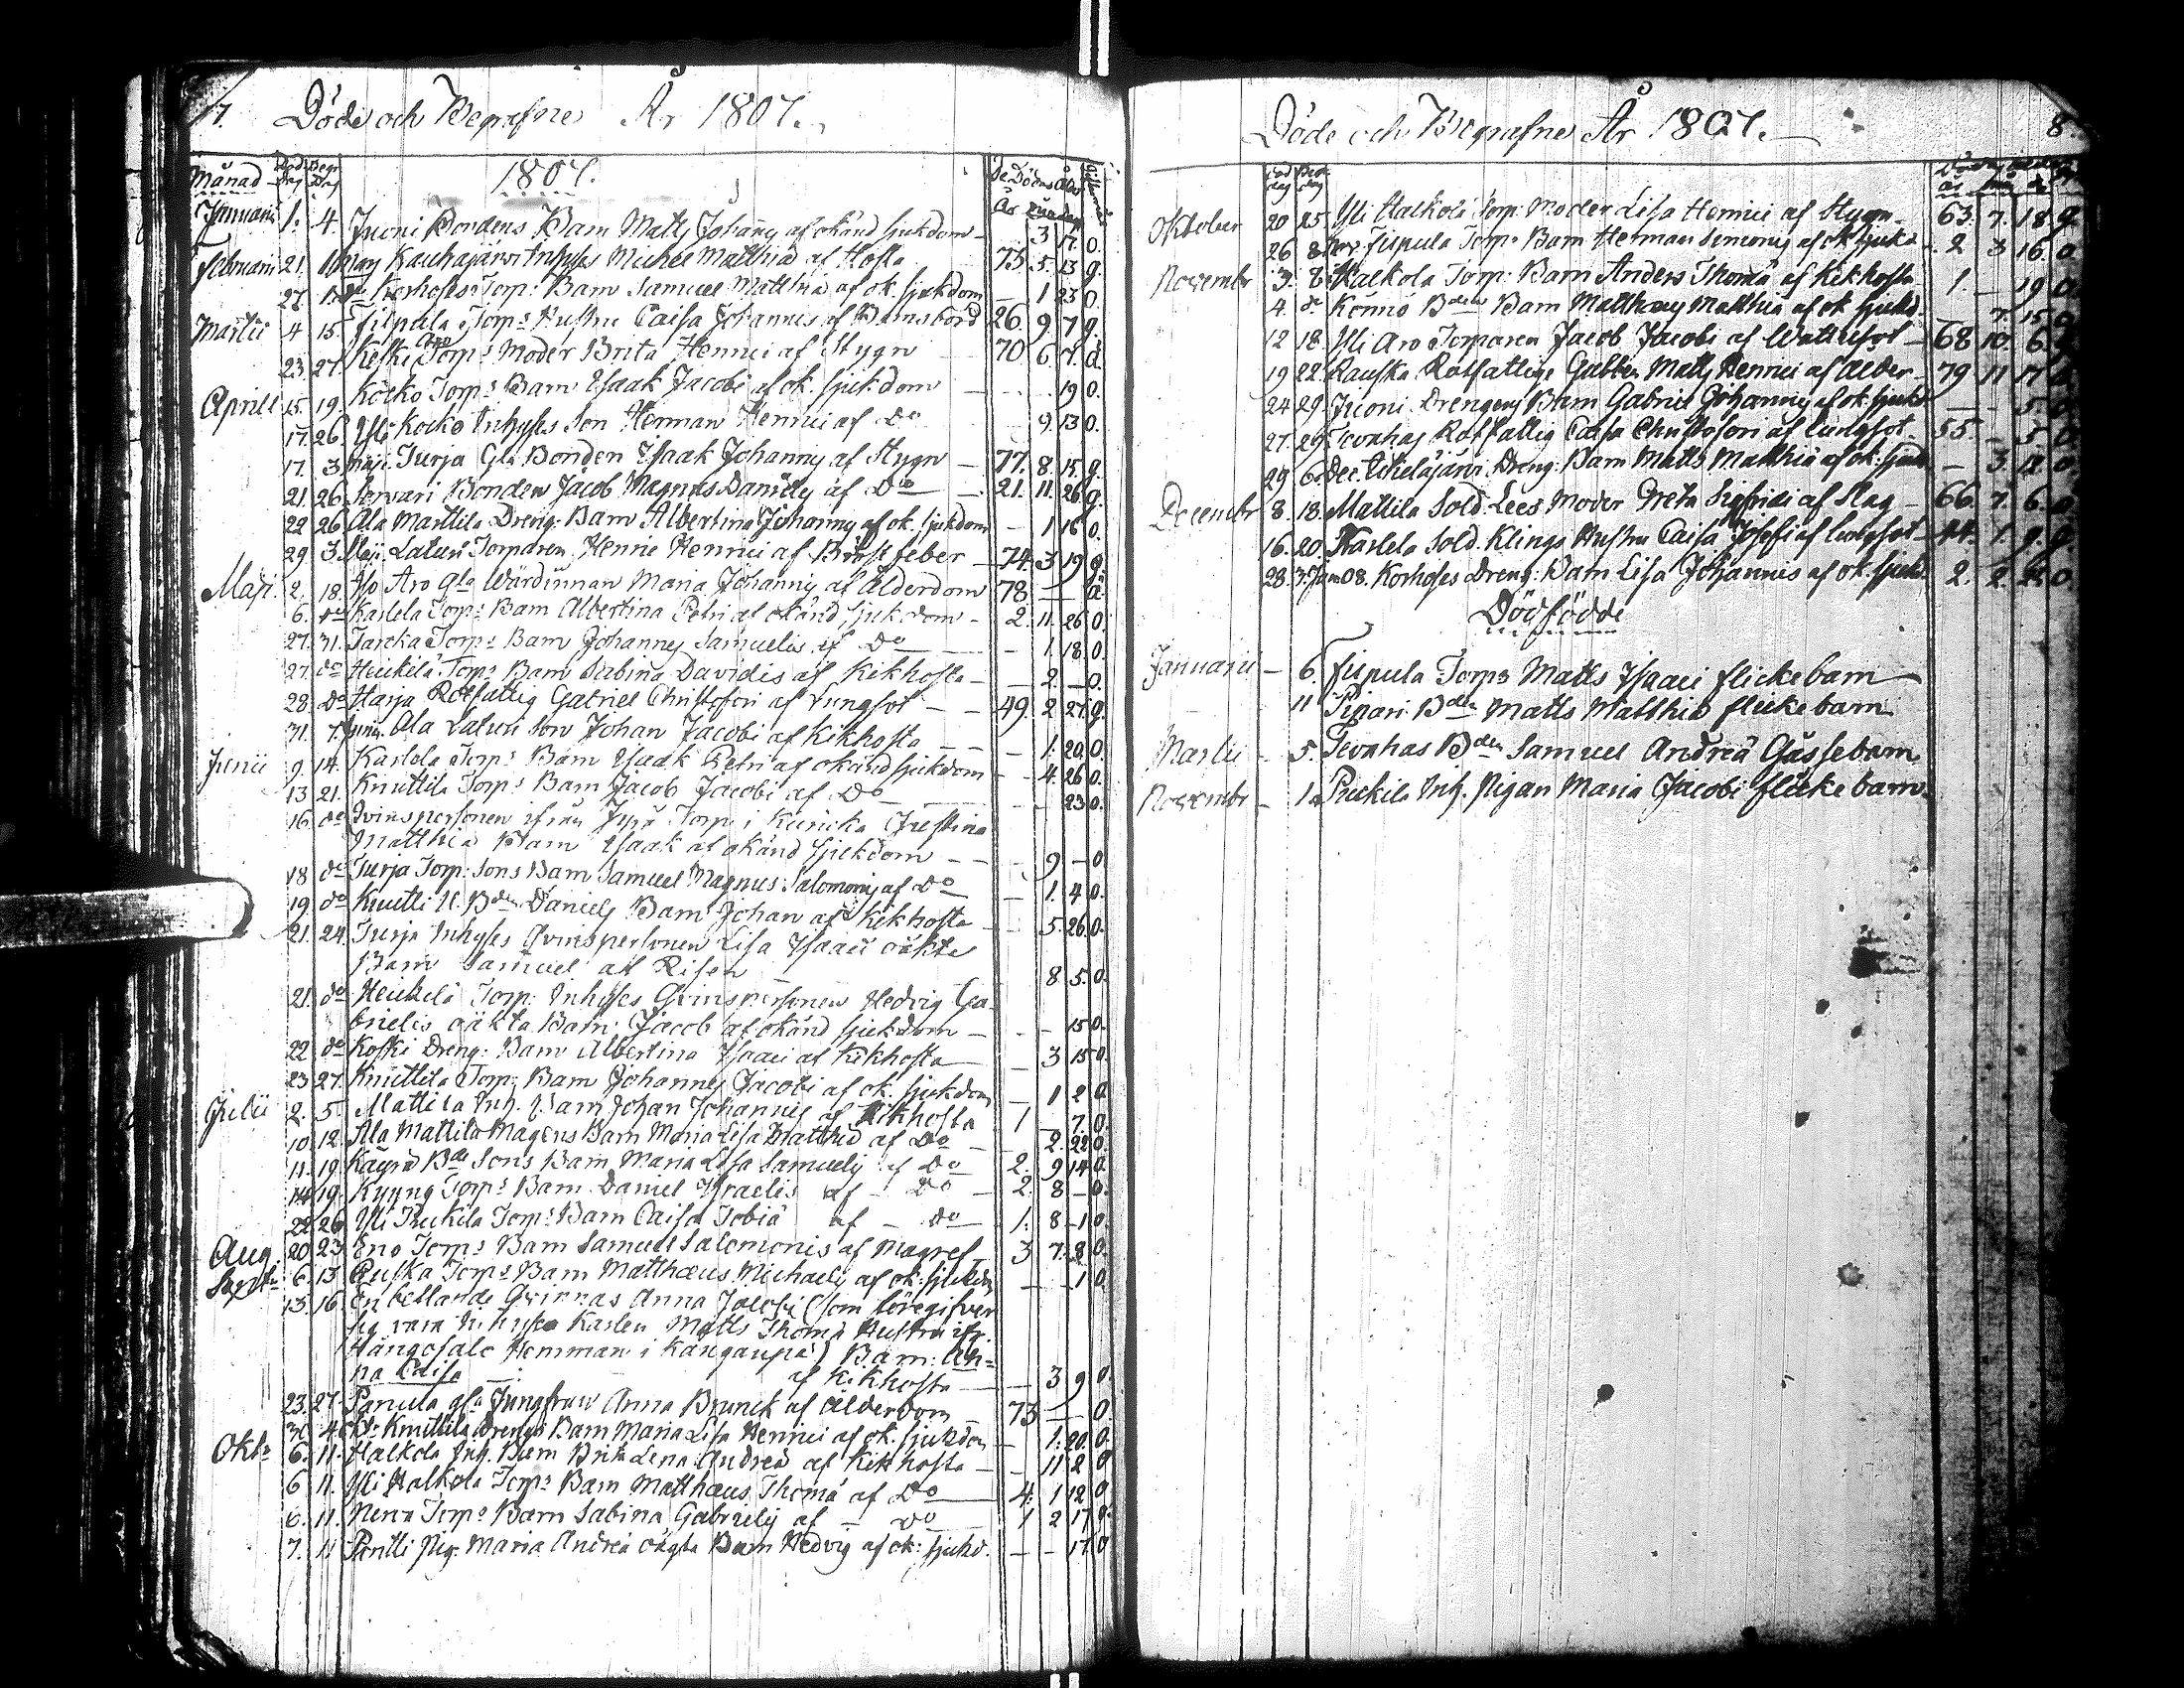 7. Döde och Begrafne År 1807.
Månad Död Dag Begr Dag 1807. De Dödas Ålder År Mån Dag
Januarii 1. 4. Juoni Bondens Barn Matts Johannis af okänd sjukdom - 3 17. o.
Februarii 21. 1 Kauhajärvi Inhyses Michel Matthiæ af Hosta 75. 5. 13 g.
27. 1. Korhoses Torp: Barn Samuel Matthiæ af ok. sjukdom - 1 23 o.
Martii 4 15. Filpula Torp: Hustru Caisa Johannis af Barnsbörd 26. 9. 7 g.
23. 27. Keski Torp: Moder Brita Henrici af Stygn 70 6
Aprill 15. 19. Köckö Torp: Barn Isaak Jacobi af ok. sjukdom - 19 o.
17. 26. Yli Köckö Inhyses Son Herman Henrici af Do 9. 13 o.
17. 3 Maji. Turja Gla Bonden Isaak Johannis af Stygn - 77. 8. 15. g.
21. 26. Sorvari Bonden Jacob Magnus Danielis af Do 21. 11. 26 g.
22 26 Ala Marttila Dreng: Barn Albertina Johannis af ok. sjukdom - 1 16 o.
29 3 Maji. Laturi Torparen Henric Henrici af Bröstfeber - 74. 3 19 g.
Maji. 2. 18. Iso Aro Gla Wärdinnan Maria Johannis af Ålderdom 78 -
6. do Karlela Torp: Barn Albertina Petri af okänd sjukdom - 2. 11. 26 o.
27. 31. Jaroka Torp: Barn Johannes Samuelis af Do - 1. 18. o.
27. do Heickilä Torp: Barn Sabina Davidis af Kikhosta - - 2. - o.
28. do Harja Rotfattig Gabriel Christofori af Lungsot - - 49. 2 27. g.
31. 7. Junii. Ala Laturi Son Johan Jacobi af Kikhosta - - 1. 20. o.
Junii 9. 14. Karlela Torp: Barn Isaak Petri af okänd sjukdom - 4. 26 o.
13 21. Knuttila Torp: Barn Jacob Jacobi af Do - 23 o.
16. do Qvinspersonen ifrån Torp i Kuricka Christina
Matthiæ Barn Isaak af okänd sjukdom - - 9 - o
18 do Turja Torp: Sons Barn Samuel Magnus Salomonis af Do - 1. 4 o.
19. do Knuuti U. Bdn Daniels Barn Johan af Kikhosta - 5. 26. o.
21. 24. Turja Inhyses Qvinspersonen Lisa Isaaci oäkta
Barn Samuel af Risen 8 5. o.
21. do Heickilä Torp: Inhyses Qvinspersonen Hedvig Ga-
brielis oäkta Barn: Jacob af okänd sjukdom - - 15 o.
22 do Koski Dreng: Barn Albertina Isaaci af Kikhosta - 3 15 o.
23 27. Knuttila Torp: Barn Johannes Jacobi af ok. sjukdom - 1 2 o.
Julii 2. 5. Mattila Inh. Barn Johan Johannis af Kikhosta 1 - 7 o.
10. 12. Ala Mattila Magens Barn Maria Lisa Matthiæ af Do - 2. 22 o.
11. 19 Käyrä Bde Sons Barn Maria Lisa Samuelis af Do 2. 9 14 o.
14 19. Kyyny Torp: Barn Daniel Israelis af - Do - 2. 8 - o.
22. 26 Yli Pickilä Torp: Barn Caisa Tobiæ af - do 1. 8 - 1 o.
Aug 20 23 Eno Torp: Barn Samuel Salomonis af Magref 3 7. 8 o.
Septr 6. 13 Ruska Torp: Barn Matthæus Michaelis af ok: sjukdom - - 1 o.
13. 16. En betlande Qvinnas Anna Jacobi (som föregifver
sig vara Inhyses Karlen Matts Thomæ Hustru ifr.
Hangosalo Hemman i Kangaupä) Barn: An=
na Caisa af Kikhosta - 3 9 o.
23. 27. Panula gla Jungfrun Anna Brunck af Ålderdom 73 - - o.
30. 4 Knuttila Drengs Barn Maria Lisa Henrici af ok. sjukdom - 1. 20 o.
Oktr 6. 11. Halkola Inh. Barn Brita Lena Andreæ af Kikhosta - 11 2 o
6 11. Yli Halkola Torp: Barn Matthæus Thomæ af Do 4. 1 12 o
6. 11. Nerva Torp: Barn Sabina Gabrielis af - Do 1 2 17 o.
7. 11 Pentti Pig: Maria Andreæ oägta Barn Hedvig af ok: sjukd. - - 17 o
Döde och Begrafne År 1807. 8.
Oktober 20 25 Yli Halkola Torp: Moder Lisa Henrici af Stygn 63. 7. 18 g
26 8 Filpula Torp: Barn Herman Simonis af ok sjukd. 2 3 16. o.
Novembr 3. 8 Halkola Torp: Barn Anders Thomæ af Kikhosta 1. - 19 o.
4. do Könnö Bdens Barn Matthæus Matthiæ af ok sjukd. - 7. 15 o
12 18 Yli Aro Torparen Jacob Jacobi af Wattusot 68 10. 6.
19 22. Rauska Rotfattige Gubben Matts Henrici af Ålder. 79 11 17
24 29. Juoni Drengens Barn Gabriel Johannis af ok: sjukd - - 5. o
27. 29. Tevahas Rotfattig Caisa Christofori af lungsot 55. - 5.
29 6 Dec. Dreng: Barn Matts Matthiæ af ok: sjukd - 3 o
Decembr 8. 18. Mattila Sold. Lees Moder Greta Sigfridi af Slag 66. 7. 6.
16. 20. Karlela Sold. Klings Hustru Caisa Josefi af lungsot 44. 1. 9. g.
28. 3 Jan 08. Korhoses Dreng: Barn Lisa Johannis af ok. sjukd. 2. 2. 22 o
Dödfödde
Januarii - 6. Filpula Torp: Matts Isaaci flickebarn
11 Pipari Bden Matts Matthiæ flickebarn
Martii - 5. Tevahas Bden Samuel Andreæ Gåssebarn
Novembr - 1 Pickilä Inh. Pigan Maria Jacobi flickebarn